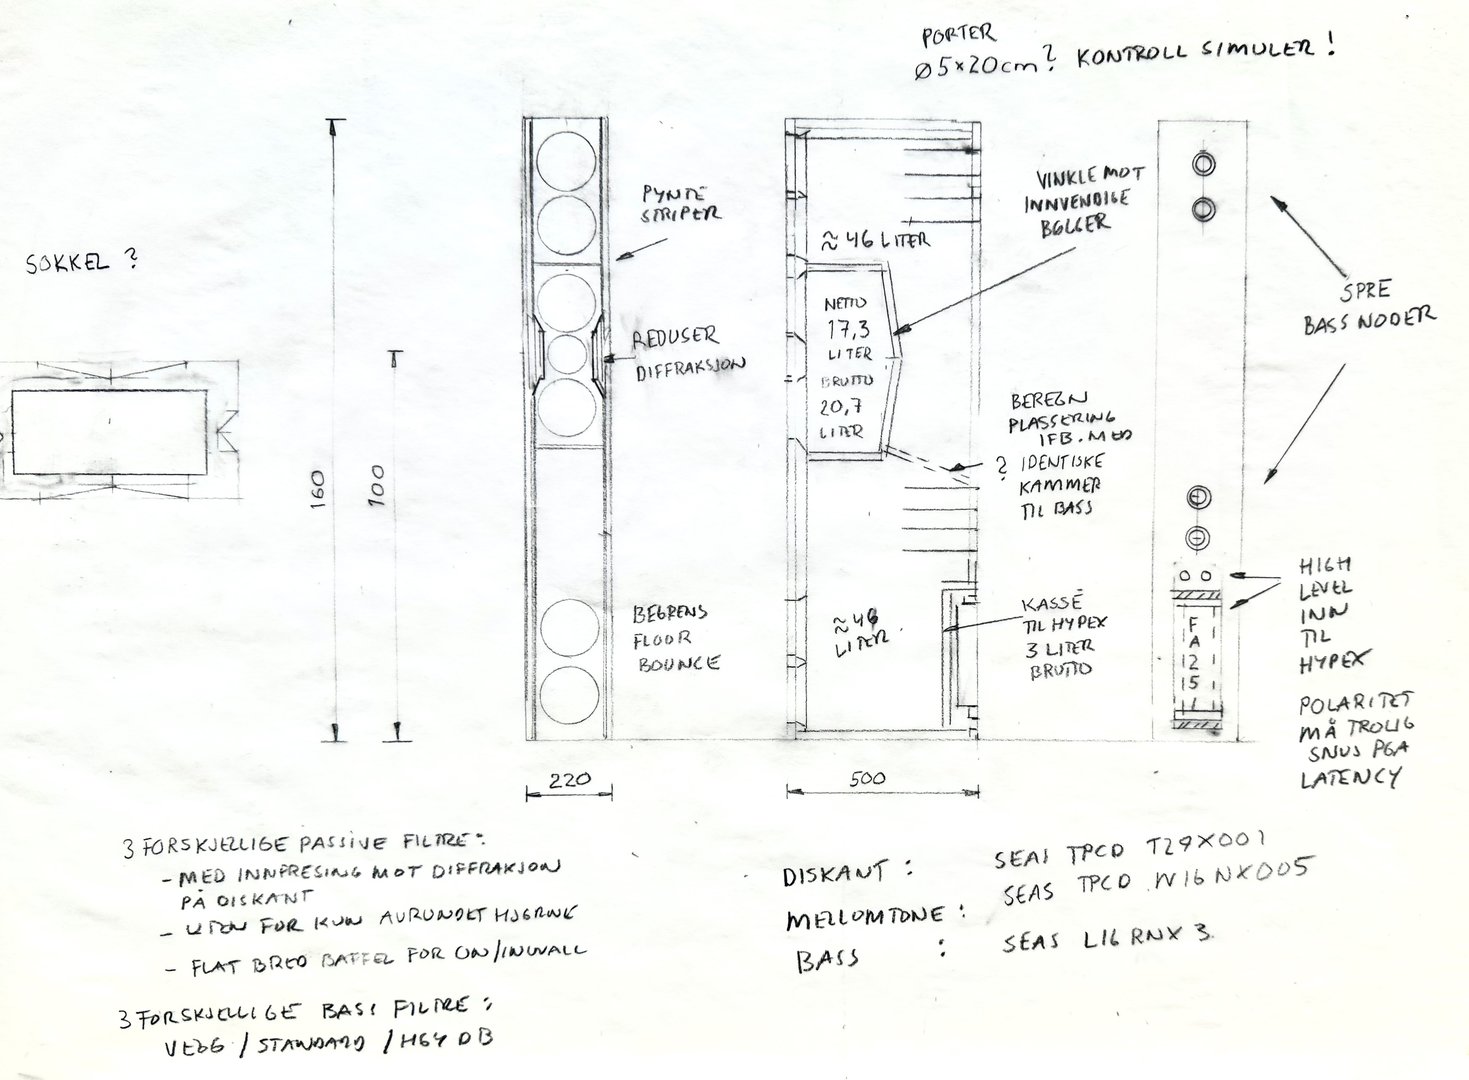 PORTER
Ø5×20cm? KONTROLL SIMULER!
SOKKEL ?
PYNTE
STRIPER
REDUSER
DIFFRAKSJON
BEGRENS
FLOOR
BOUNCE
160
100
220
500
≈ 46 LITER
NETTO
17,3
LITER
BRUTTO
20,7
LITER
≈ 46
LITER
VINKLE MOT
INNVENDIGE
BØLGER
BEREGN
PLASSERING
IFB. MED
? IDENTISKE
KAMMER
TIL BASS
KASSE
TIL HYPEX
3 LITER
BRUTTO
SPRE
BASS NODER
HIGH
LEVEL
INN
TIL
HYPEX
F
A
12
5
1
POLARITET
MÅ TROLIG
SNUS PGA
LATENCY
3 FORSKJELLIGE PASSIVE FILTRE:
- MED INNFRESING MOT DIFFRAKSJON
PÅ DISKANT
- UTEN FOR KUN AVRUNDET HJØRNE
- FLAT BRED BAFFEL FOR ON/INWALL
3 FORSKJELLIGE BASS FILTRE:
VEGG / STANDARD / HØY DB
DISKANT : SEAS TPCD T29X001
MELLOMTONE : SEAS TPCD W16NX005
BASS : SEAS L16RNX3